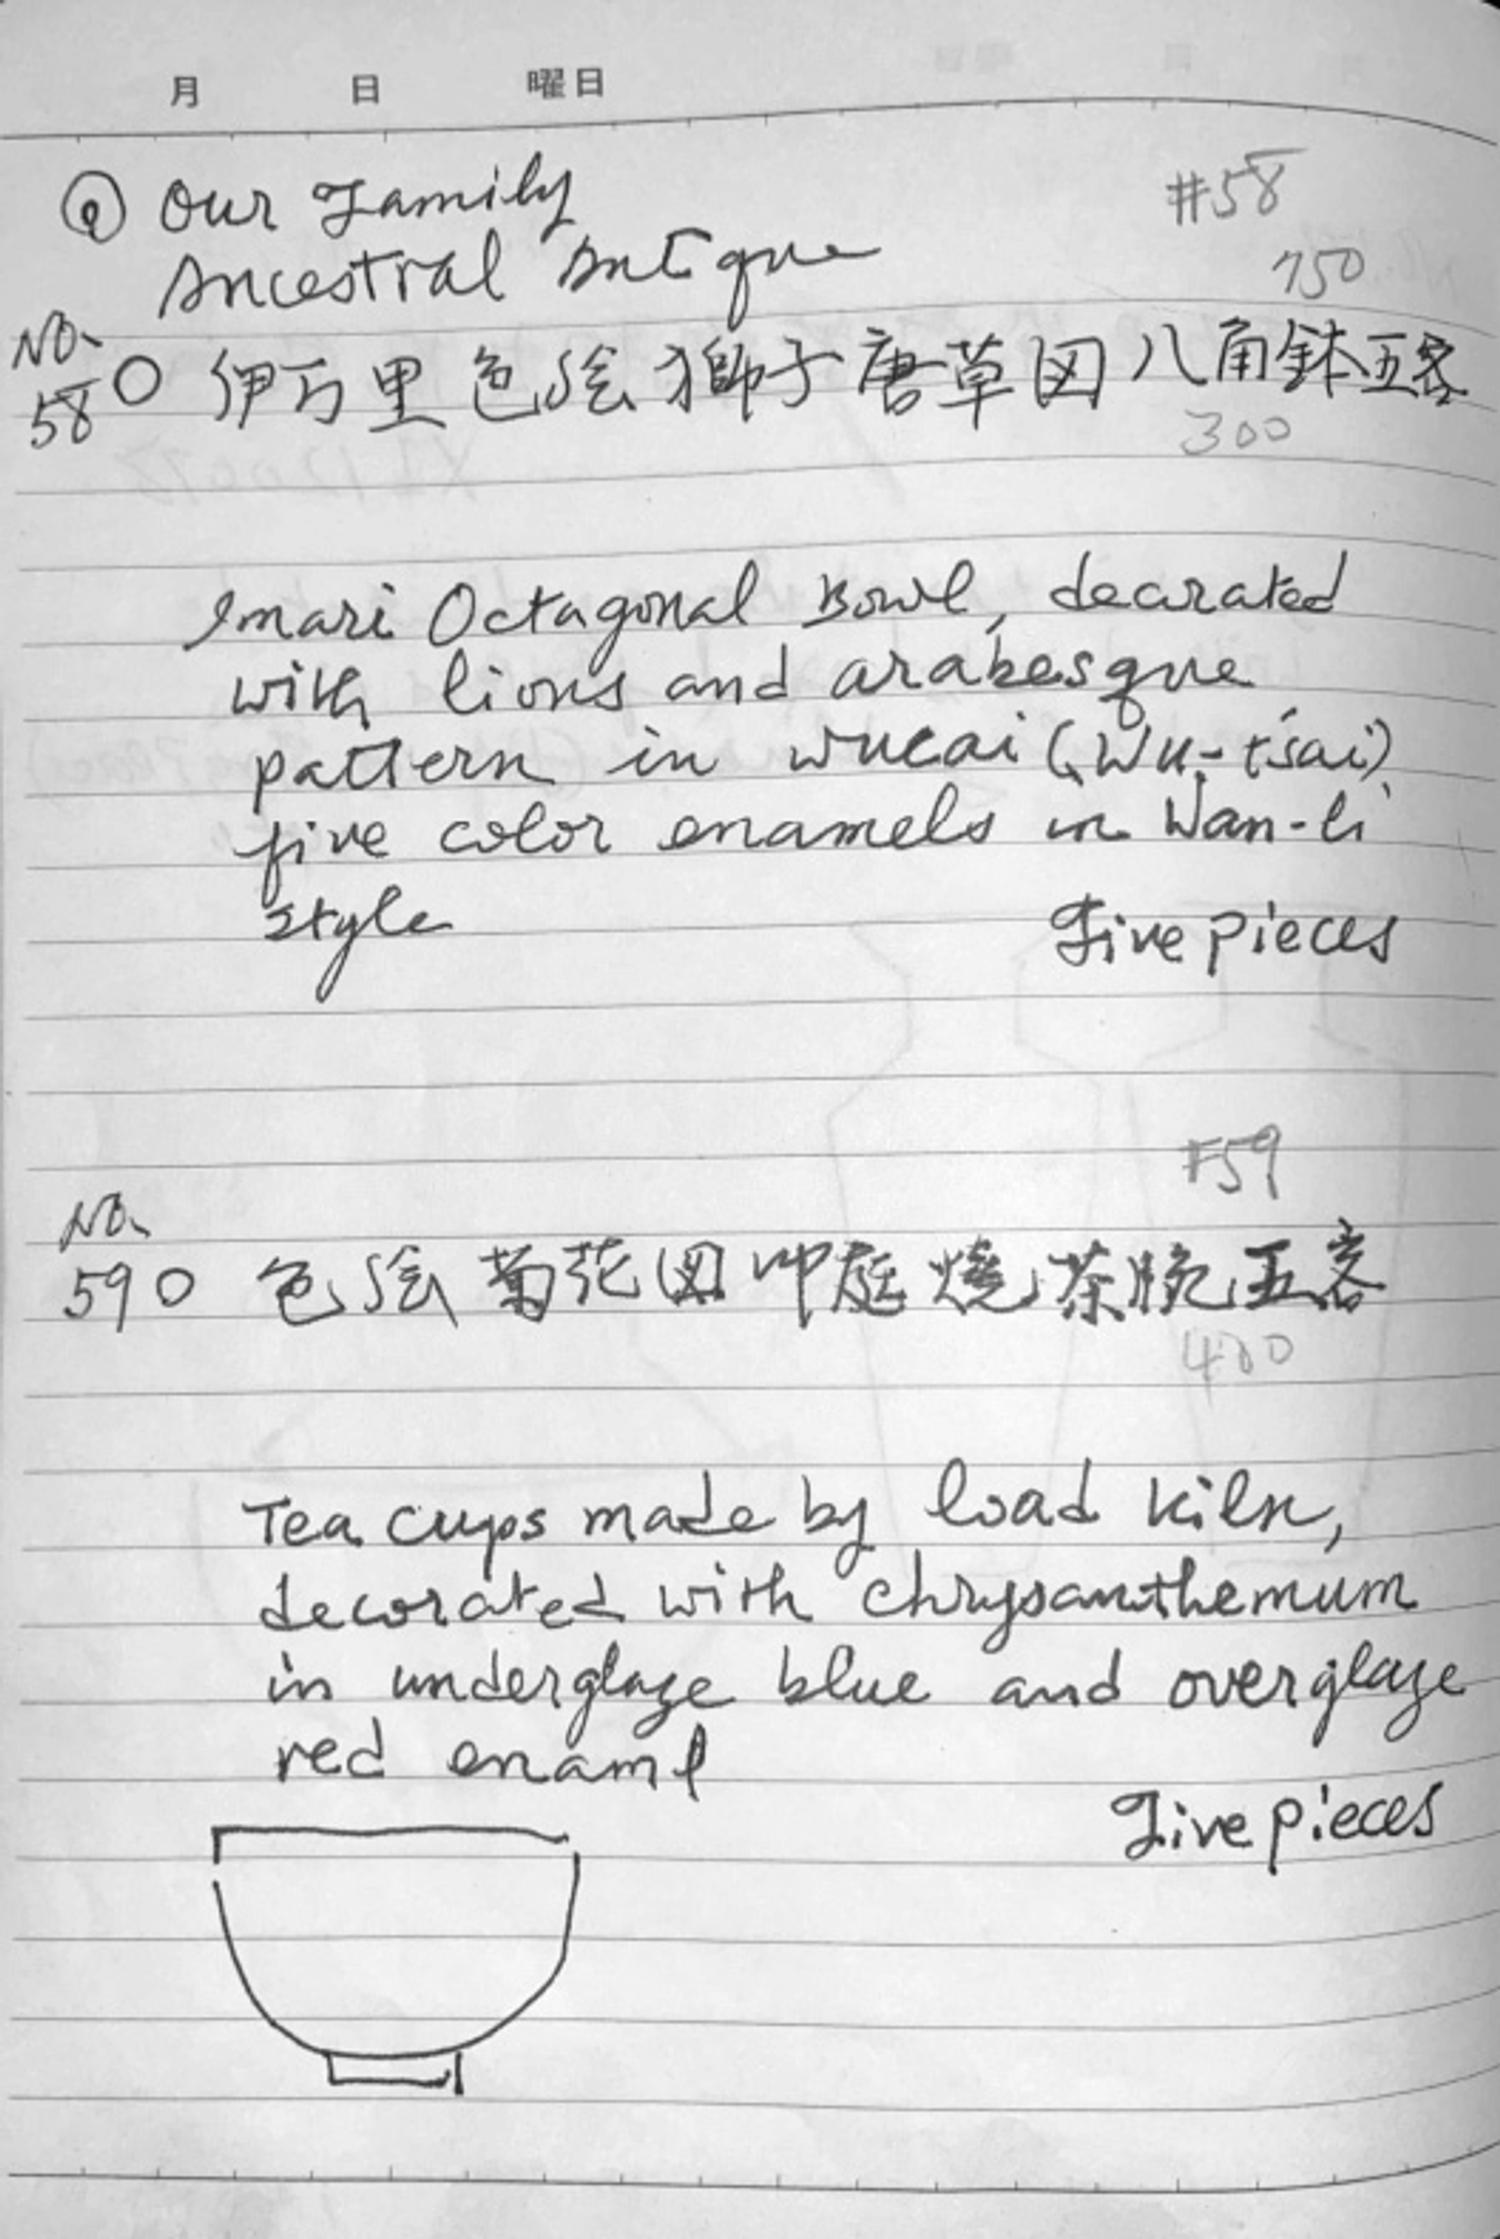 月 日 曜日
Our Family
Ancestral Antique
#58
750
No.
58 ○ 伊万里色絵獅子唐草図八角鉢五客
300
Imari Octagonal Bowl, decarated
with lions and arabesque
pattern in wucai (Wu-ts'ai)
five color enamels in Wan-li
style
Five pieces
#59
No.
59 ○ 色絵菊花図 庭焼茶腕五客
400
Tea cups made by load kiln,
decorated with chrysanthemum
in underglaze blue and overglaze
red enaml
Five pieces